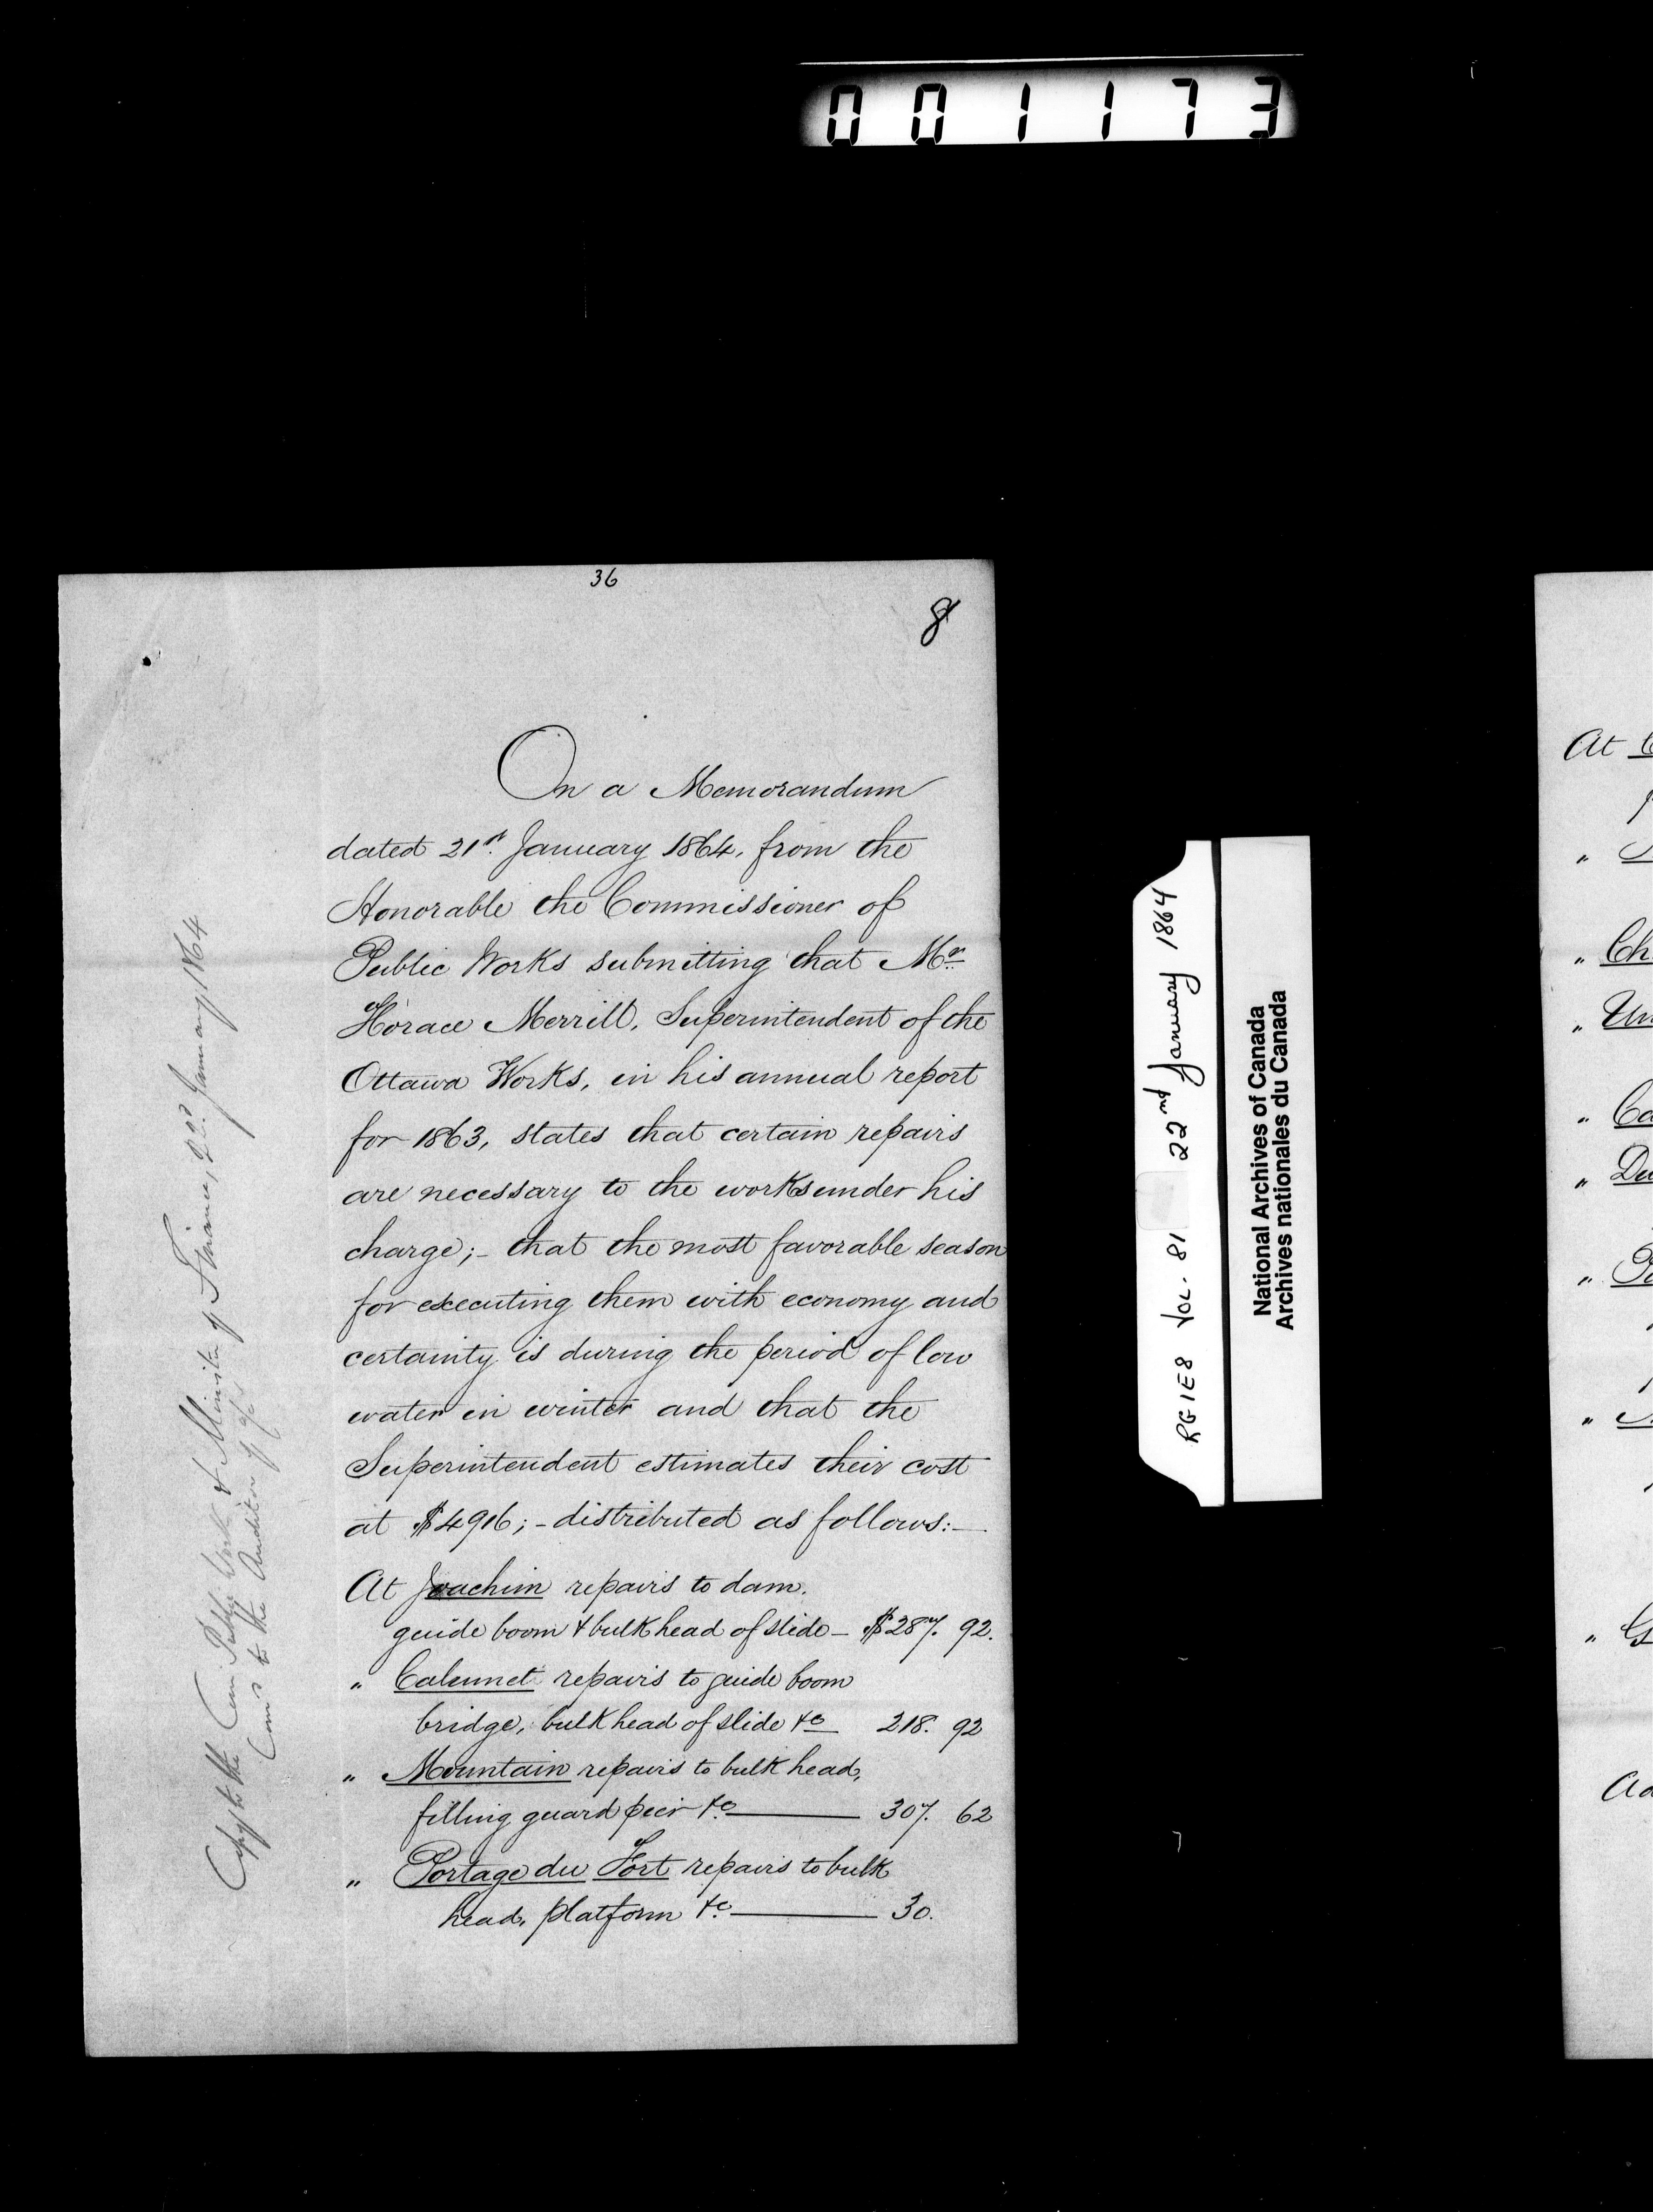 001173
36
8
On a Memorandum
dated 21st January 1864, from the
Honorable the Commissioner of
Public Works submitting that Mr.
Horace Merrill, Superintendent of the
Ottawa Works, in his annual report
for 1863, states that certain repairs
are necessary to the works under his
charge;- that the most favorable season
for executing them with economy and
certainty is during the period of low
water in winter and that the
Superintendent estimates their cost
at $4916;- distributed as follows:-
At Joachim repairs to dam.
guide boom & bulkhead of slide - $287. 92.
" Calumet repairs to guide boom
bridge, bulkhead of slide &c 218. 92
" Mountain repairs to bulk head,
filling guard pier &c 307. 62
" Portage du Fort repairs to bulk
head, platform &c 30.
Copy to the Com Public Works & Minister of Finance, 22d January 1864
Com'd to the Auditor of
RG1E8 Vol. 81 22nd January 1864
National Archives of Canada
Archives nationales du Canada
At
" Ch
" Un
" Ca
" Du